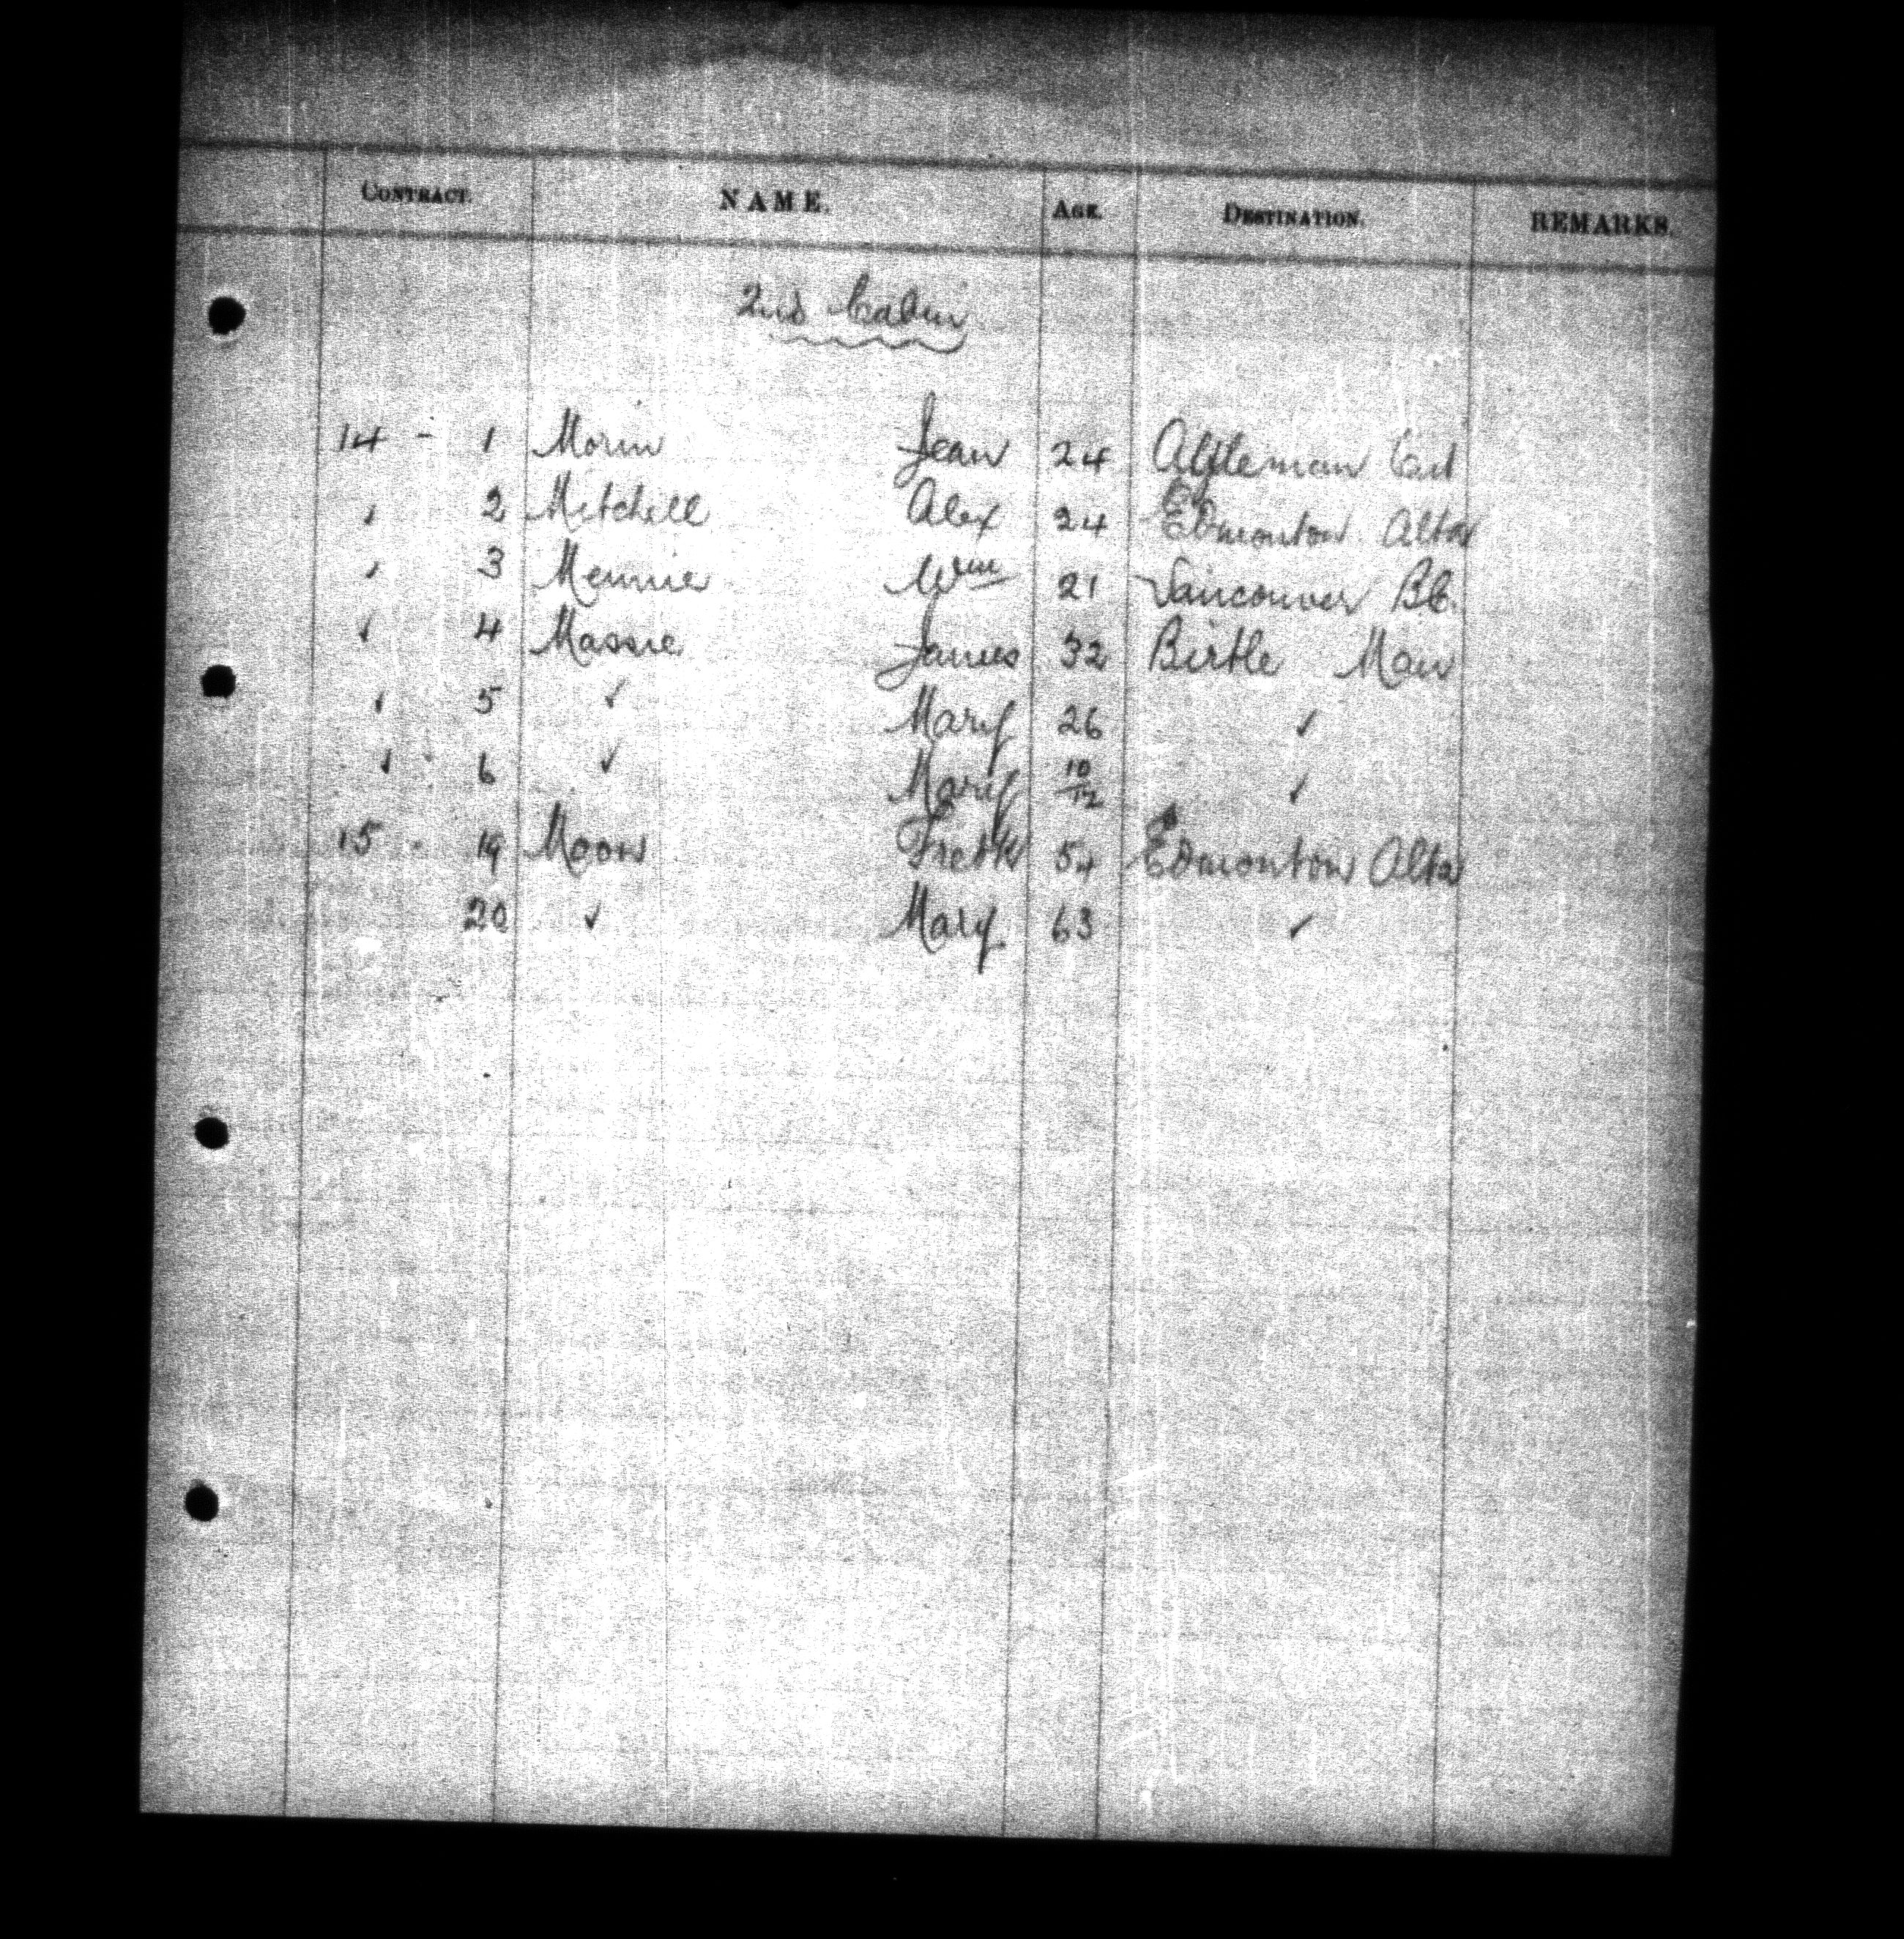 CONTRACT. NAME. AGE. DESTINATION. REMARKS.
2nd Cabin
14 - 1 Morin Jean 24
✓ 2 Mitchell Alex 24 Edmonton Alta
✓ 3 Mennie Wm 21 Vancouver B.C.
✓ 4 Massie James 32 Birtle Man
✓ 5 ✓ Mary 26 ✓
✓ - 6 ✓ Mary 10/12 ✓
15 - 19 Moon Fredk 54 Edmonton Alta
20 ✓ Mary 63 ✓